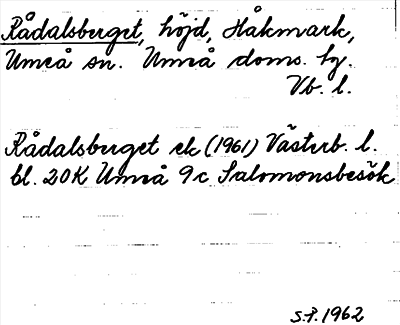 Rådalsberget, höjd, Håkmark,
Umeå sn. Umeå doms. hg.
Vb. l.
Rådalsberget ek (1961) Västerb. l.
bl. 20K Umeå 9c Salomonsbesök
S.P. 1962